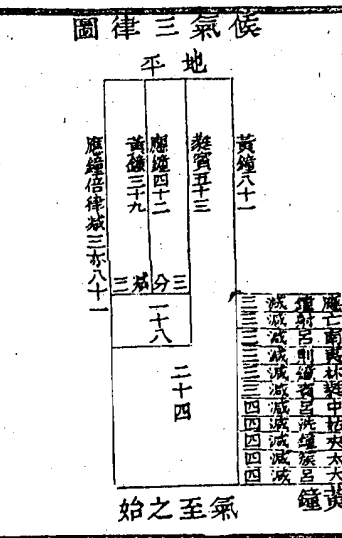 候氣三律圖
地平
黃鐘八十一
蕤賓五十三
應鐘四十二
黃鐘三十九
應鐘倍律減三亦八十一
三分減三
一十八
二十四
應鐘減三
亡射減三
南呂減三
夷則減三
林鐘減三
蕤賓減三
中呂減四
姑洗減四
夾鐘減四
太蔟減四
大呂減四
黃鐘
氣至之始